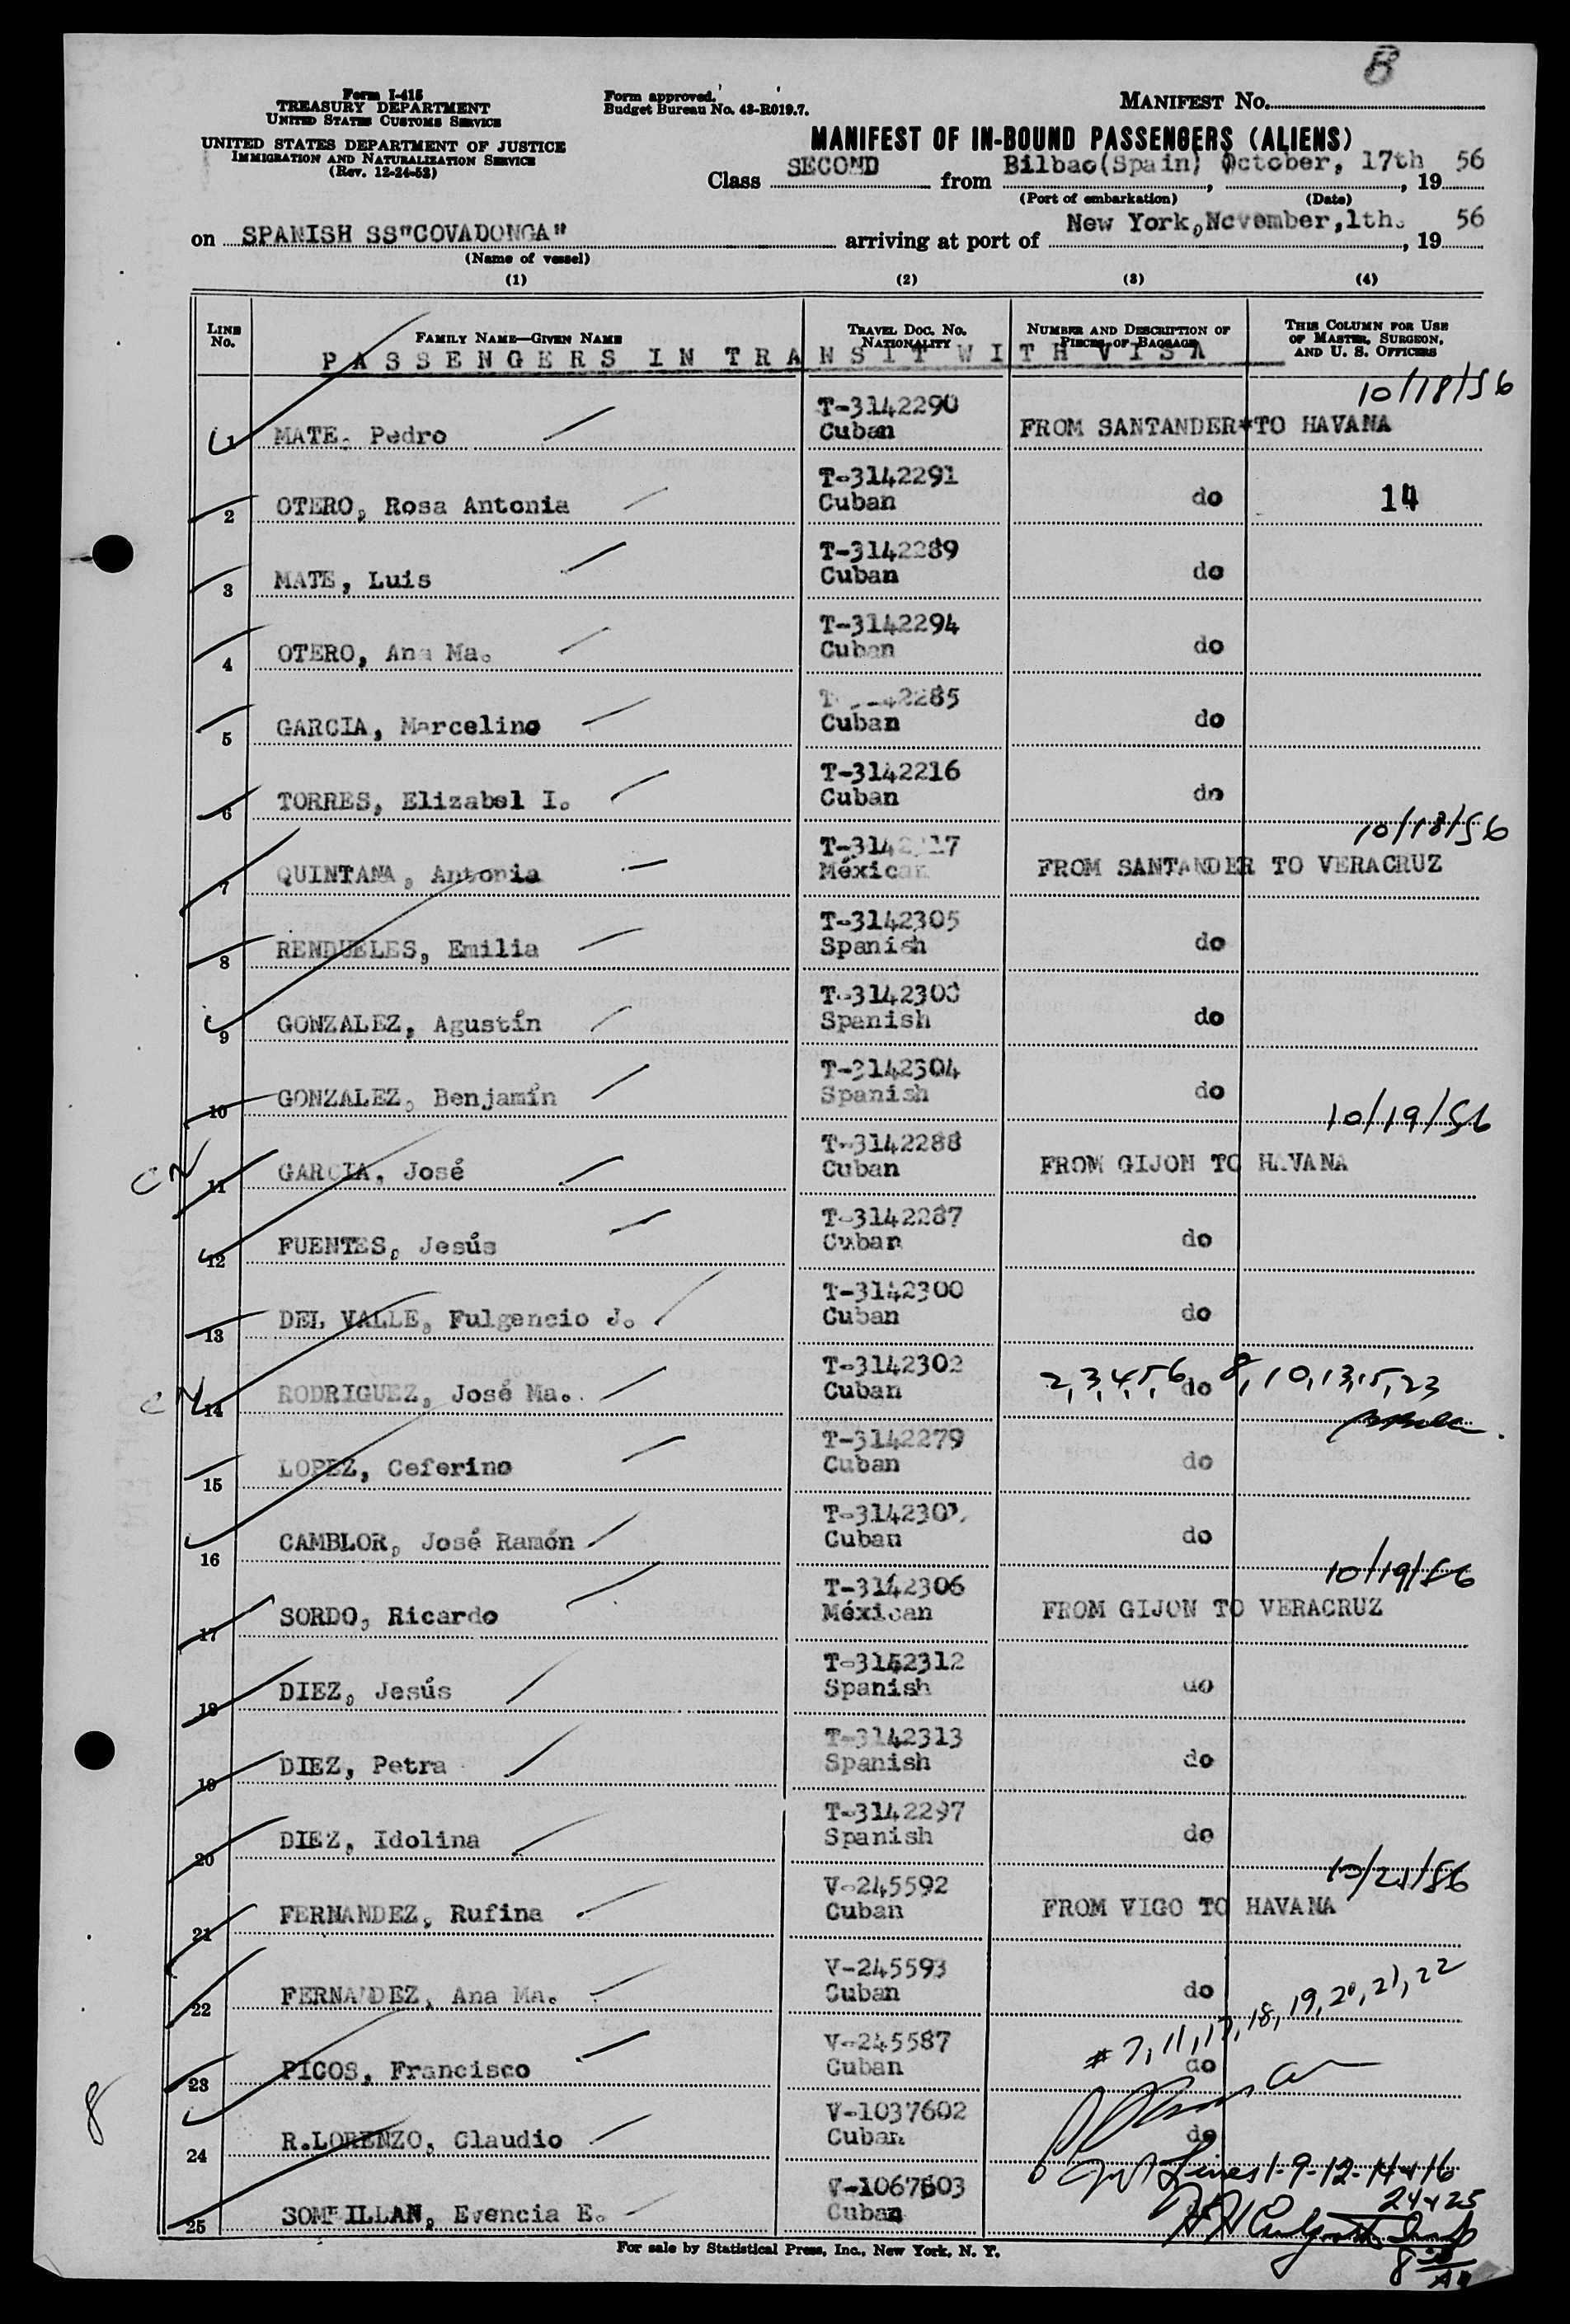 8
Form I-415
TREASURY DEPARTMENT
UNITED STATES CUSTOMS SERVICE
UNITED STATES DEPARTMENT OF JUSTICE
IMMIGRATION AND NATURALIZATION SERVICE
(Rev. 12-24-52)
Form approved.
Budget Bureau No. 43-R019.7.
MANIFEST NO.
MANIFEST OF IN-BOUND PASSENGERS (ALIENS)
Class SECOND from Bilbao(Spain), October, 17th, 19 56
(Port of embarkation) (Date)
on SPANISH SS"COVADONGA" arriving at port of New York, November, 1th., 19 56
(Name of vessel)
(1) (2) (3) (4)
LINE NO.
FAMILY NAME—GIVEN NAME
TRAVEL DOC. NO. NATIONALITY
NUMBER AND DESCRIPTION OF PIECES OF BAGGAGE
THIS COLUMN FOR USE OF MASTER, SURGEON, AND U. S. OFFICERS
PASSENGERS IN TRANSIT WITH VISA
10/18/56
1 MATE, Pedro T-3142290 Cuban FROM SANTANDER*TO HAVANA
2 OTERO, Rosa Antonia T-3142291 Cuban do 14
3 MATE, Luis T-3142289 Cuban do
4 OTERO, Ana Ma. T-3142294 Cuban do
5 GARCIA, Marcelino 42285 Cuban do
6 TORRES, Elizabel I. T-3142216 Cuban do
10/18/56
7 QUINTANA, Antonia Méxican FROM SANTANDER TO VERACRUZ
8 RENDUELES, Emilia T-3142305 Spanish do
9 GONZALEZ, Agustín Spanish do
10 GONZALEZ, Benjamín T-3142304 Spanish do
10/19/56
CN 11 GARCIA, José T-3142288 Cuban FROM GIJON TO HAVANA
12 FUENTES, Jesús T-3142287 Cuban do
13 DEL VALLE, Fulgencio J. T-3142300 Cuban do
CN 14 RODRIGUEZ, José Ma. T-3142302 Cuban do
2,3,4,5,6, 8,10,13,15,23
15 LOPEZ, Ceferino T-3142279 Cuban do
16 CAMBLOR, José Ramón Cuban do
10/19/56
17 SORDO, Ricardo T-3142306 Méxican FROM GIJON TO VERACRUZ
18 DIEZ, Jesús T-3142312 Spanish do
19 DIEZ, Petra T-3142313 Spanish do
20 DIEZ, Idolina T-3142297 Spanish do
10/21/56
21 FERNANDEZ, Rufina V-245592 Cuban FROM VIGO TO HAVANA
22 FERNANDEZ, Ana Ma. V-245593 Cuban do
# 7, 11, 17, 18, 19, 20, 21, 22
23 PICOS, Francisco V-245587 Cuban do
8
24 R.LORENZO, Claudio V-1037602 Cuban do
Lines 1-9-12-14-16
24+25
25 Evencia E. V-1067603 Cuban
For sale by Statistical Press, Inc., New York, N. Y.